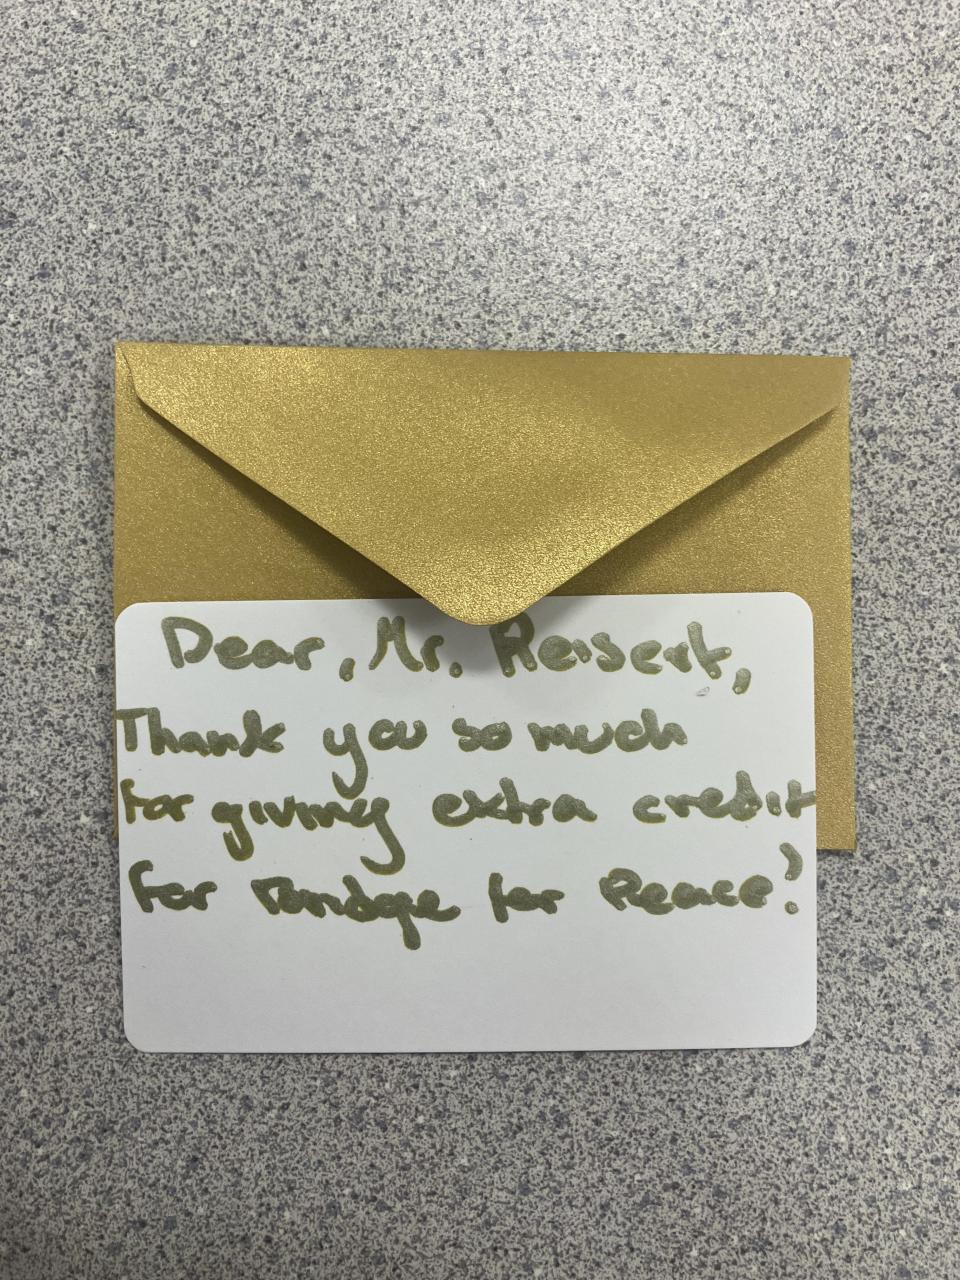 Dear, Mr. Reisert,
Thank you so much
for giving extra credit
for for Peace!